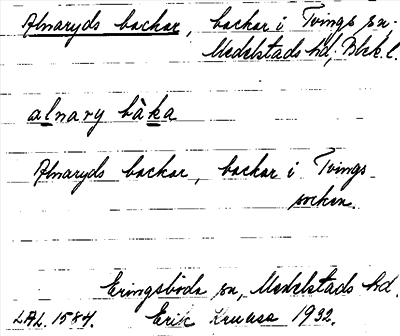 Alnaryds backar, backar i Tvings sn.
Medelstads hd, Blek. l.
alnary bàka
Alnaryds backar, backar i Tvings
socken.
Eringsboda sn, Medelstads hd.
LAL. 1584. Erik 1922.